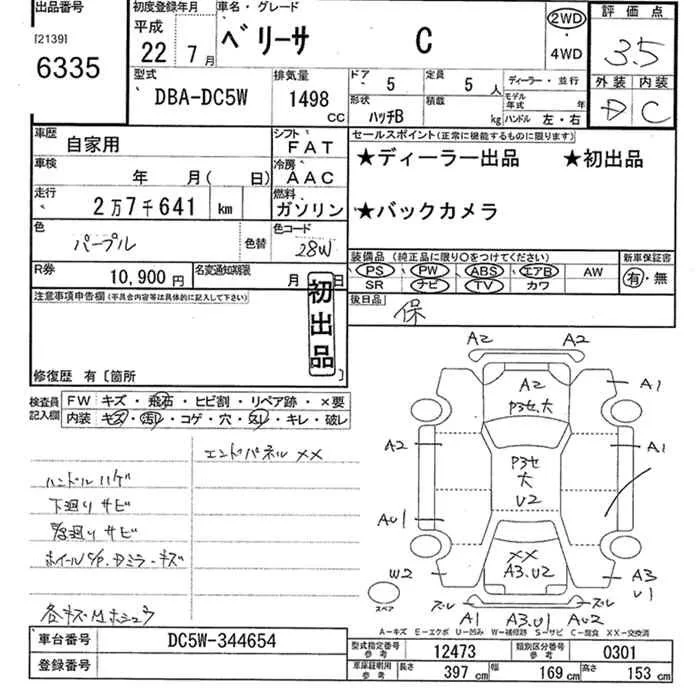 出品番号 初度登録年月 車名・グレード 評価点
[2139] 平成 ベリーサ C 2WD 3.5
6335 22年 7月 ・ 4WD
型式 排気量 ドア 5 定員 5人 ディーラー・並行 外装 内装
DBA-DC5W 1498 CC 形状 ハッチB 積載 kg モデル年式 年 D C
ハンドル 左・右
車歴 自家用 シフト FAT セールスポイント(正常に機能するものに限ります)
車検 年 月( 日) 冷房 AAC ★ディーラー出品 ★初出品
走行 2万7千641 km 燃料 ガソリン ★バックカメラ
色 パープル 色替 色コード 28W
装備品 (純正品に限り○をつけてください) 新車保証書
R券 10,900円 名変通知期限 月 日 PS PW ABS エアB AW 有・無
SR ナビ TV カワ
注意事項申告欄(不具合内容等は具体的に記入して下さい) 初出品 後日品 保
修復歴 有 [箇所 ]
検査員記入欄 FW キズ・飛石・ヒビ割・リペア跡・×要
内装 キズ・汚れ・コゲ・穴・スレ・キレ・破レ
エンドパネル ××
ハンドルハゲ
下廻りサビ
ホイールC/P.Dミラーキズ
A2 A2
A2 A1
P3セ.大
A2 P3セ A1
大
U2
AU1
W2 ×× A3
A3.U2 U1
スペア ズレ ズレ
A1 A3.U1 AU2
A-キズ E-エクボ U-凹み W-補修跡 S-サビ C-腐食 XX-交換済
車台番号 DC5W-344654 型式指定番号 参考 12473 類別区分番号 参考 0301
登録番号 車庫証明用 参考 長さ 397 cm 幅 169 cm 高さ 153 cm